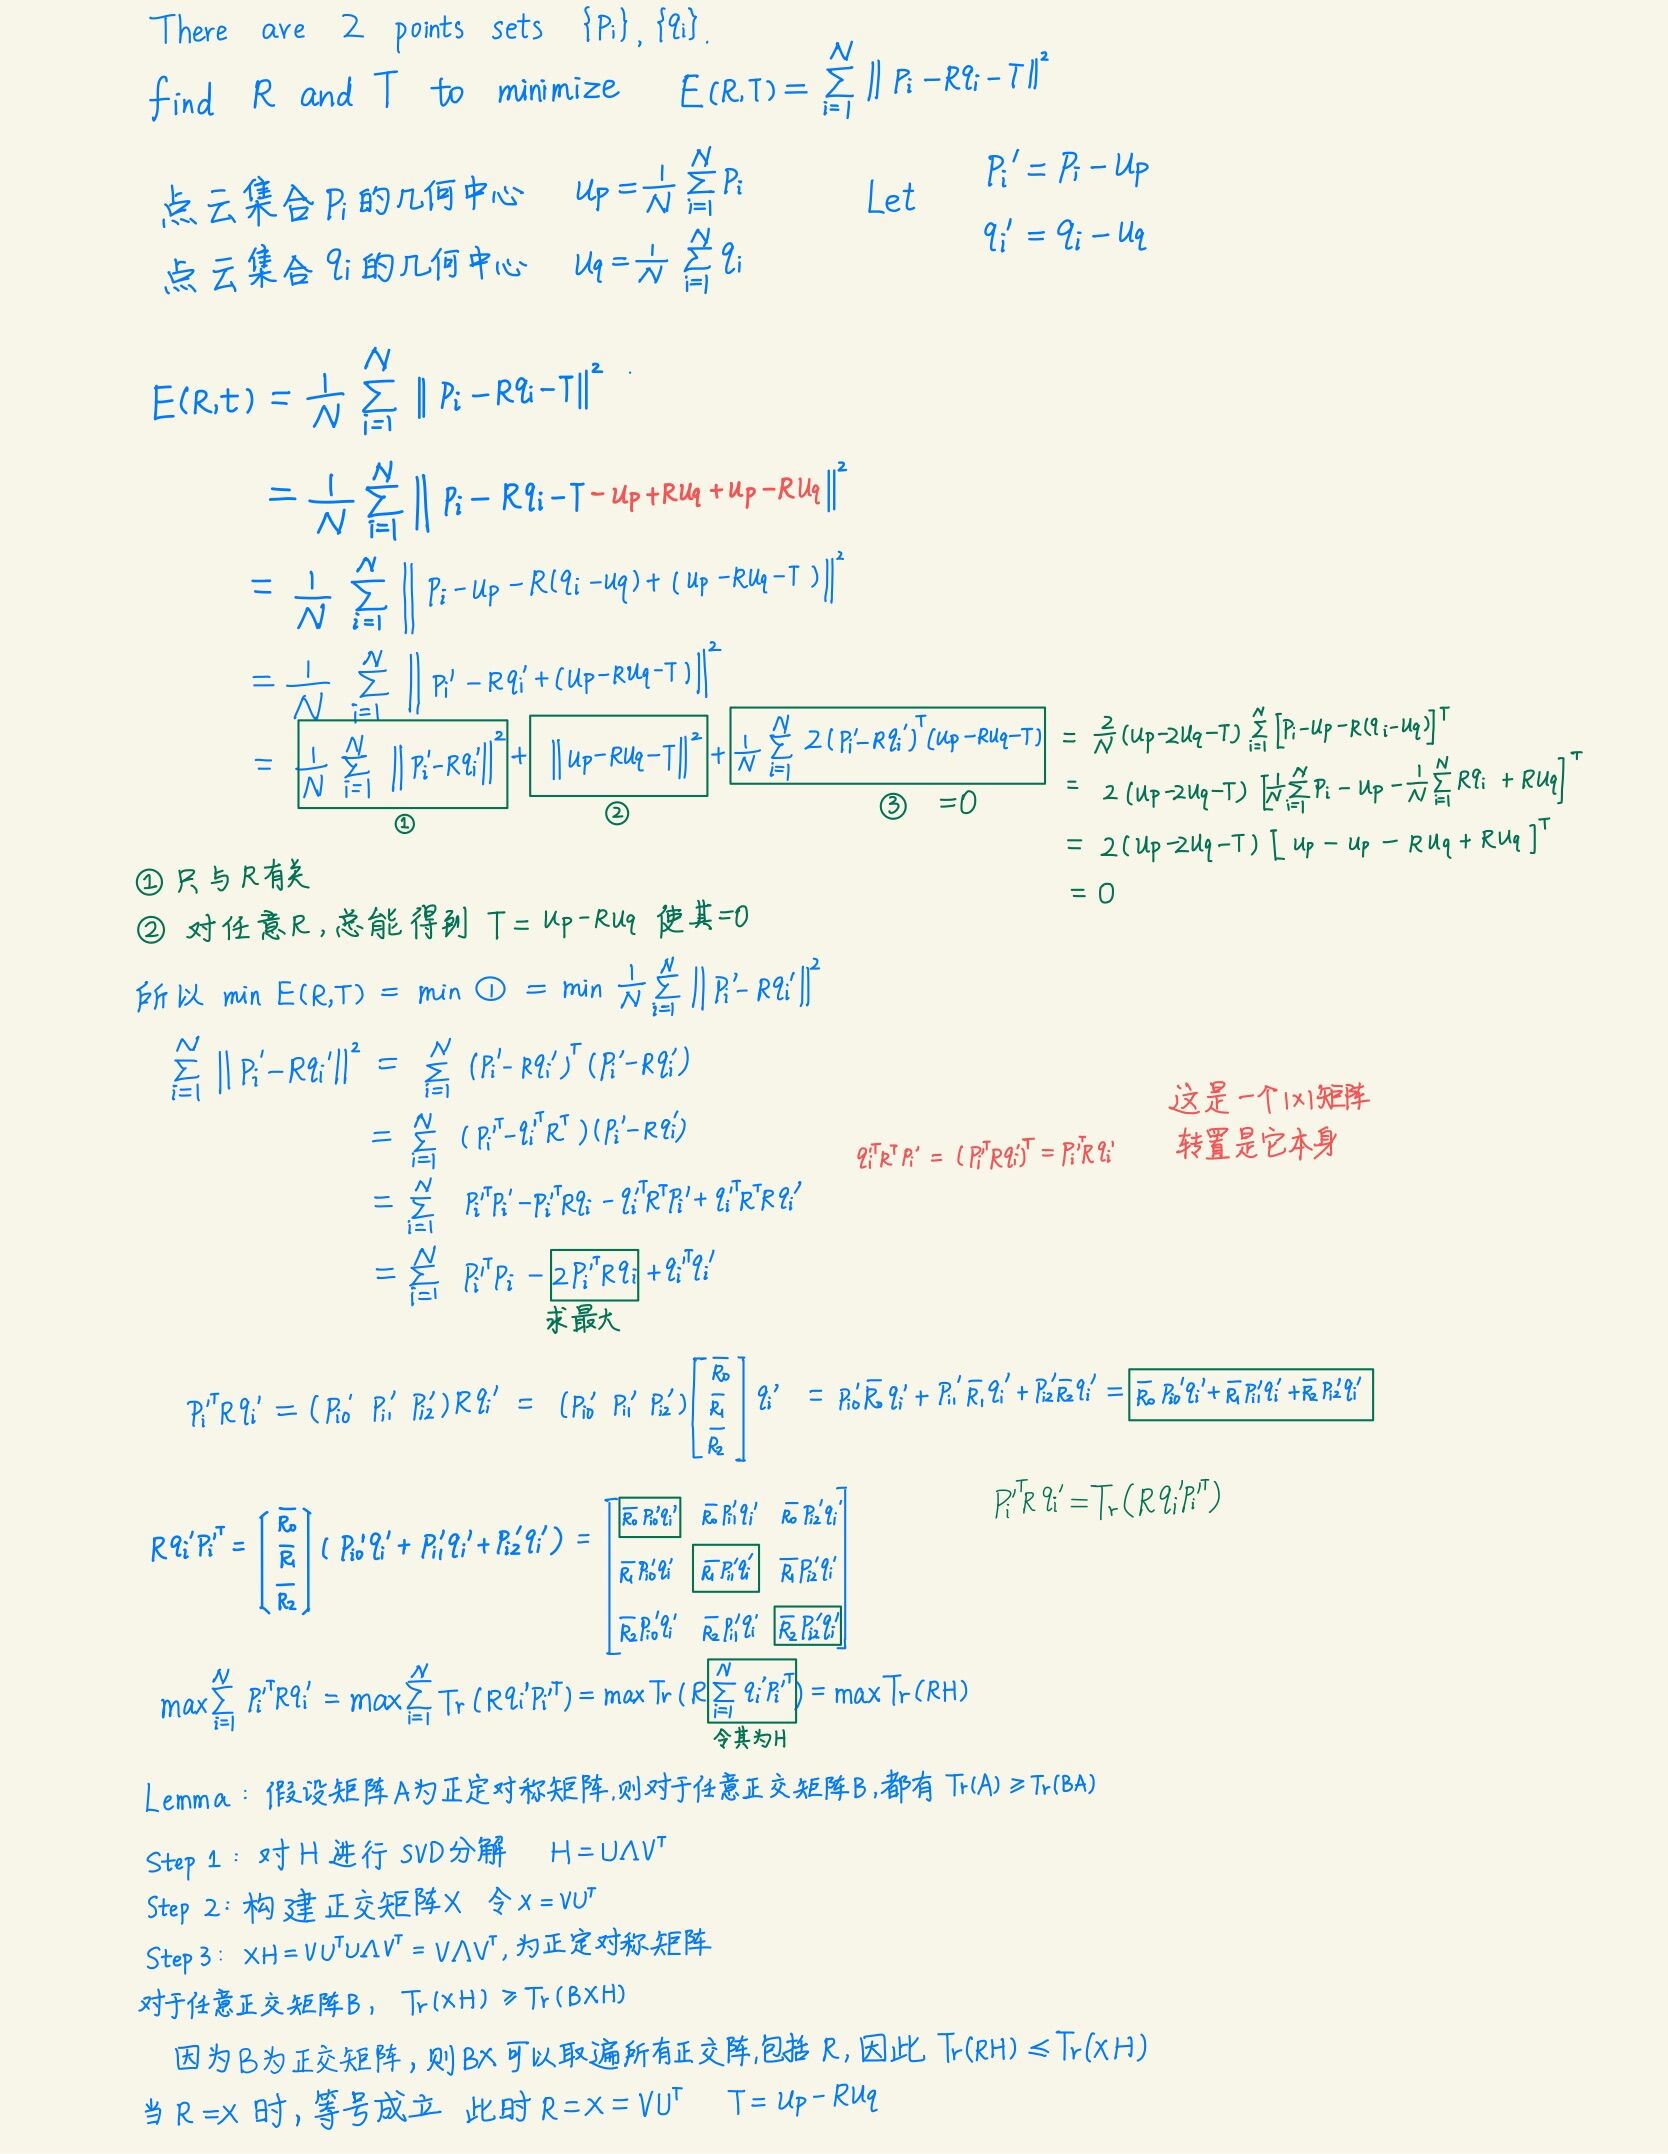 There are 2 points sets {Pi}, {qi}.
find R and T to minimize E(R,T) = Σ_{i=1}^{N} ‖Pi - Rqi - T‖²
点云集合Pi的几何中心 up = 1/N Σ_{i=1}^{N} Pi
Let Pi' = Pi - up
点云集合qi的几何中心 uq = 1/N Σ_{i=1}^{N} qi
qi' = qi - uq
E(R,t) = 1/N Σ_{i=1}^{N} ‖Pi - Rqi - T‖²
= 1/N Σ_{i=1}^{N} ‖Pi - Rqi - T - up + Ruq + up - Ruq‖²
= 1/N Σ_{i=1}^{N} ‖Pi - up - R(qi - uq) + (up - Ruq - T)‖²
= 1/N Σ_{i=1}^{N} ‖Pi' - Rqi' + (up - Ruq - T)‖²
= 1/N Σ_{i=1}^{N} ‖Pi' - Rqi'‖² + ‖up - Ruq - T‖² + 1/N Σ_{i=1}^{N} 2(Pi' - Rqi')^T (up - Ruq - T)
① ② ③ =0
= 2/N (up - 2uq - T) Σ_{i=1}^{N} [Pi - up - R(qi - uq)]^T
= 2(up - 2uq - T) [1/N Σ_{i=1}^{N} Pi - up - 1/N Σ_{i=1}^{N} Rqi + Ruq]^T
= 2(up - 2uq - T) [up - up - Ruq + Ruq]^T
= 0
① 只与R有关
② 对任意R,总能得到 T = up - Ruq 使其=0
所以 min E(R,T) = min ① = min 1/N Σ_{i=1}^{N} ‖Pi' - Rqi'‖²
Σ_{i=1}^{N} ‖Pi' - Rqi'‖² = Σ_{i=1}^{N} (Pi' - Rqi')^T (Pi' - Rqi')
= Σ_{i=1}^{N} (Pi'^T - qi'^T R^T)(Pi' - Rqi')
= Σ_{i=1}^{N} Pi'^T Pi' - Pi'^T Rqi - qi'^T R^T Pi' + qi'^T R^T R qi'
= Σ_{i=1}^{N} Pi'^T Pi - 2Pi'^T Rqi + qi'^T qi'
求最大
qi'^T R^T Pi' = (Pi'^T Rqi')^T = Pi'^T Rqi'
这是一个1×1矩阵
转置是它本身
Pi'^T Rqi' = (Pi0' Pi1' Pi2') R qi' = (Pi0' Pi1' Pi2') [R̄0 R̄1 R̄2] qi' = Pi0' R̄0 qi' + Pi1' R̄1 qi' + Pi2' R̄2 qi' = R̄0 Pi0' qi' + R̄1 Pi1' qi' + R̄2 Pi2' qi'
Pi'^T R qi' = Tr(R qi' Pi'^T)
Rqi'Pi'^T = [R̄0 R̄1 R̄2] (Pi0'qi' + Pi1'qi' + Pi2'qi') =
R̄0 Pi0'qi' R̄0 Pi1'qi' R̄0 Pi2'qi'
R̄1 Pi0'qi' R̄1 Pi1'qi' R̄1 Pi2'qi'
R̄2 Pi0'qi' R̄2 Pi1'qi' R̄2 Pi2'qi'
max Σ_{i=1}^{N} Pi'^T Rqi' = max Σ_{i=1}^{N} Tr(Rqi'Pi'^T) = max Tr(R Σ_{i=1}^{N} qi'Pi'^T) = max Tr(RH)
令其为H
Lemma: 假设矩阵A为正定对称矩阵,则对于任意正交矩阵B,都有 Tr(A) ≥ Tr(BA)
Step 1: 对H进行SVD分解 H = UΛV^T
Step 2: 构建正交矩阵X 令X = VU^T
Step 3: XH = VU^T UΛV^T = VΛV^T, 为正定对称矩阵
对于任意正交矩阵B, Tr(XH) ≥ Tr(BXH)
因为B为正交矩阵, 则BX可以取遍所有正交阵,包括R, 因此 Tr(RH) ≤ Tr(XH)
当R=X时, 等号成立 此时R = X = VU^T T = up - Ruq